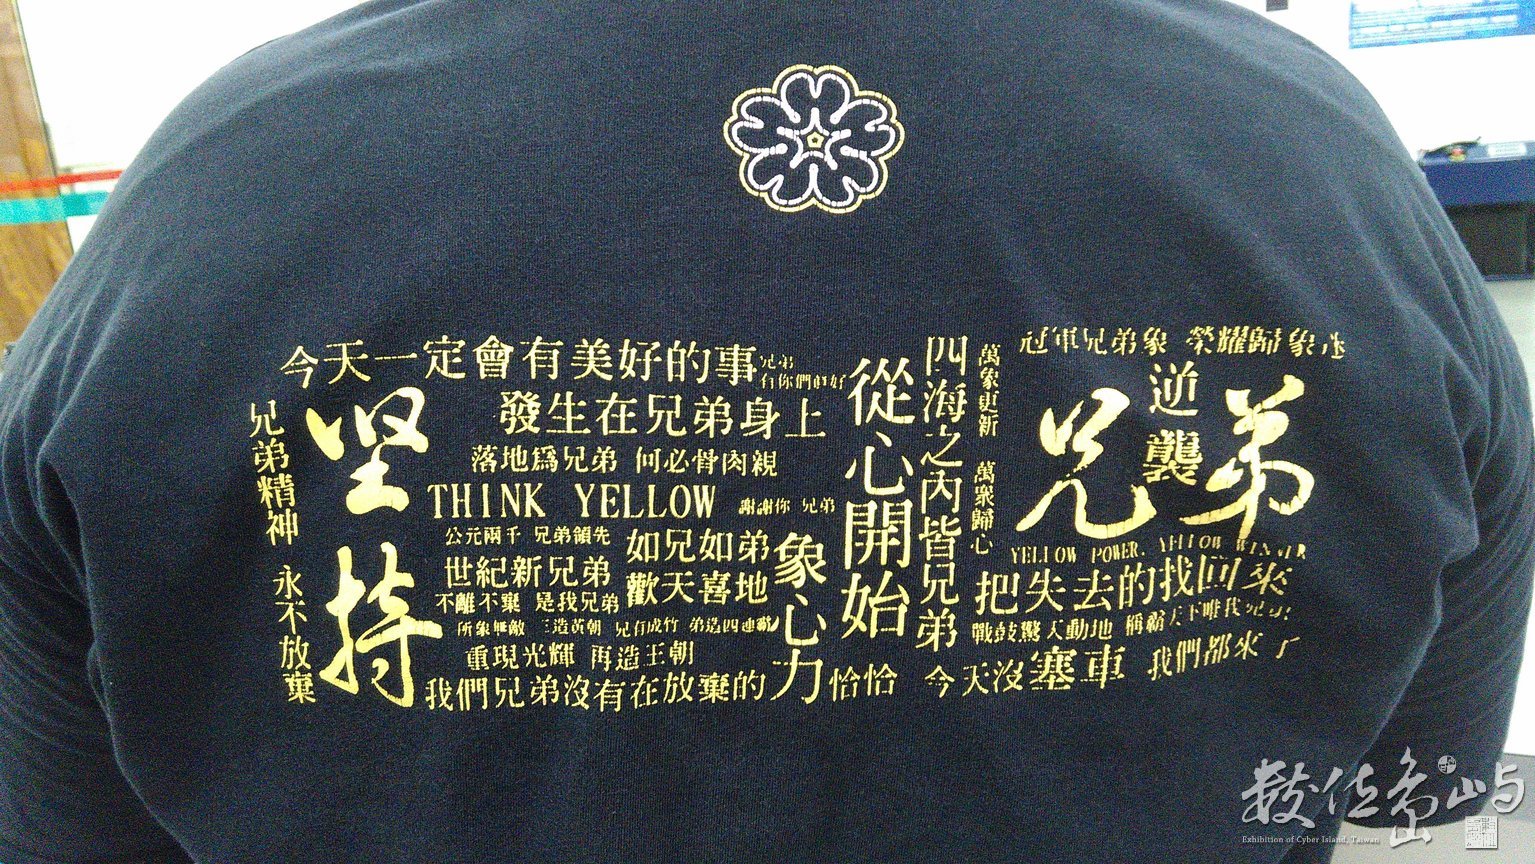 今天一定會有美好的事
發生在兄弟身上
兄弟
有你們真好
兄弟精神 永不放棄
坚持
落地為兄弟 何必骨肉親
THINK YELLOW
謝謝你 兄弟
公元兩千 兄弟領先
如兄如弟
歡天喜地
世紀新兄弟
不離不棄 是我兄弟
所象無敵 三造黃朝 兄有成竹 弟造四連霸
重現光輝 再造王朝
我們兄弟沒有在放棄的
象心力
恰恰
從心開始
四海之內皆兄弟
萬象更新 萬眾歸心
冠軍兄弟象 榮耀歸象迷
兄弟
逆襲
YELLOW POWER. YELLOW WINNER
把失去的找回來
戰鼓驚天動地 稱霸天下唯我兄弟
今天沒塞車 我們都來了
數位島嶼
Exhibition of Cyber Island, Taiwan